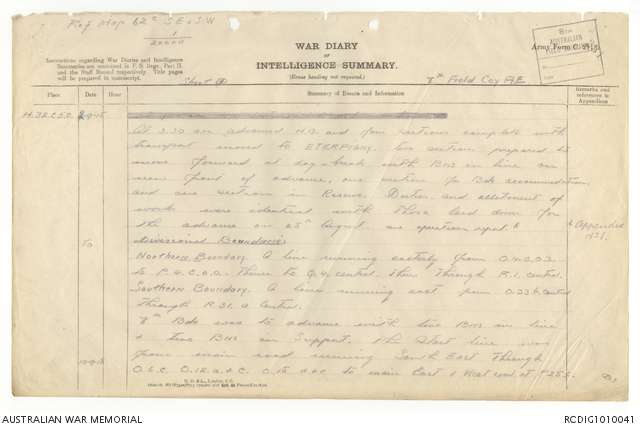 Ref Map 62c SE & SW
1
20000
WAR DIARY
or
INTELLIGENCE SUMMARY.
(Erase heading not required.)
Instructions regarding War Diaries and Intelligence
Summaries are contained in F. S. Regs., Part II.
and the Staff Manual respectively. Title pages
will be prepared in manuscript.
8TH
AUSTRALIAN
Army Form C. 2118.
Sheet
8th Field Coy AE
Place
Date
Hour
Summary of Events and Information
Remarks and
references to
Appendices
2-9-18
At 3.30 am advanced H.Q. and four sections complete with
transport moved to ETERPIGNY. Two sections prepared to
move forward at day-break with Bns in line on
front of advance, one section for Bde accommodation
and one section in Reserve. Duties and allotment of
work were identical with those laid down for
the advance on 25th August. see operation report *
* Appendix
To
Divisional Boundaries
Northern Boundary. A line running easterly from
to P.4.C.0.0. Thence to Q.4 central. then through R.1. central.
Southern Boundary. A line running east from O.33.b. central
through R.31. a central.
8th Bde was to advance with two Bns in line
& two Bns in Support. The start line was
from main road running South East through
O.6.C. O.12.a.&c. O.18 a&c to main East & West road at
AUSTRALIAN WAR MEMORIAL
RCDIG1010041